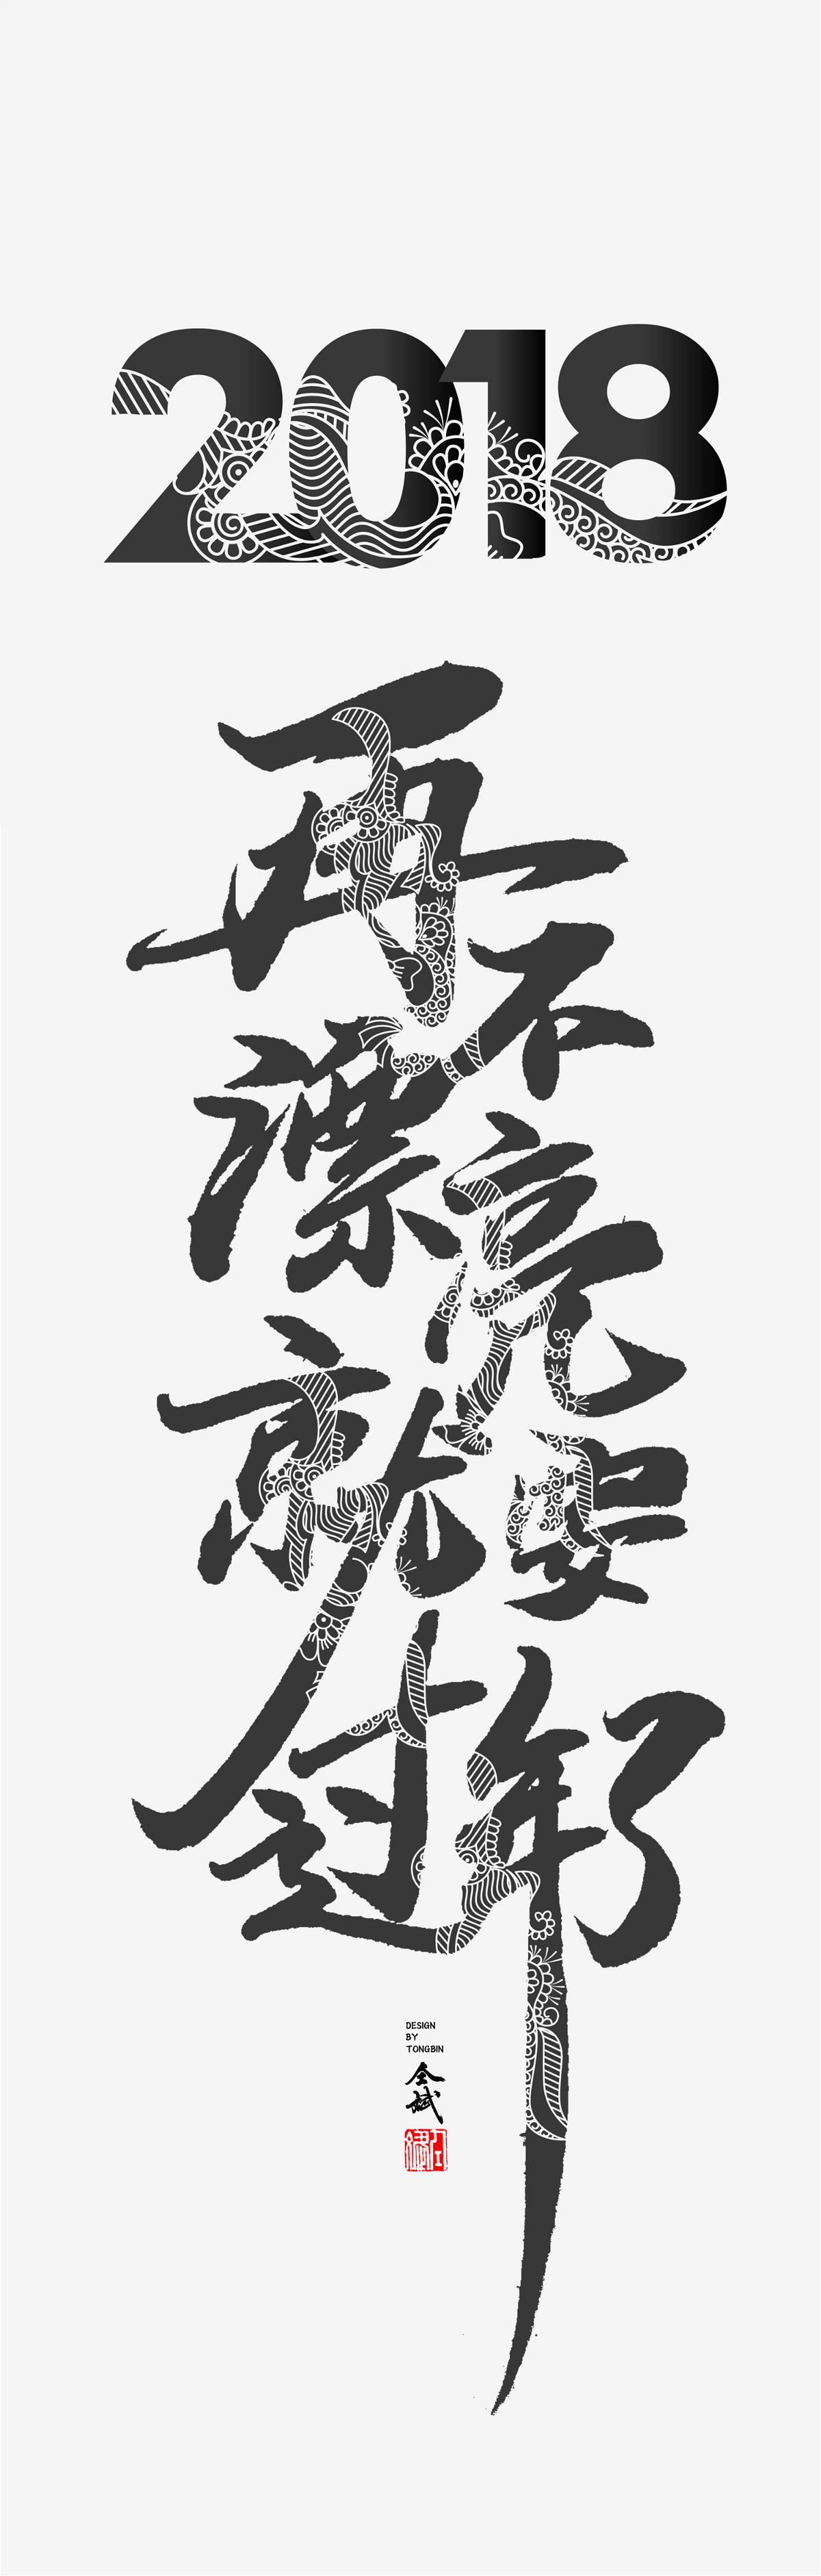 2018
再不
漂亮
就要
过年了
DESIGN
BY
TONGBIN
仝斌